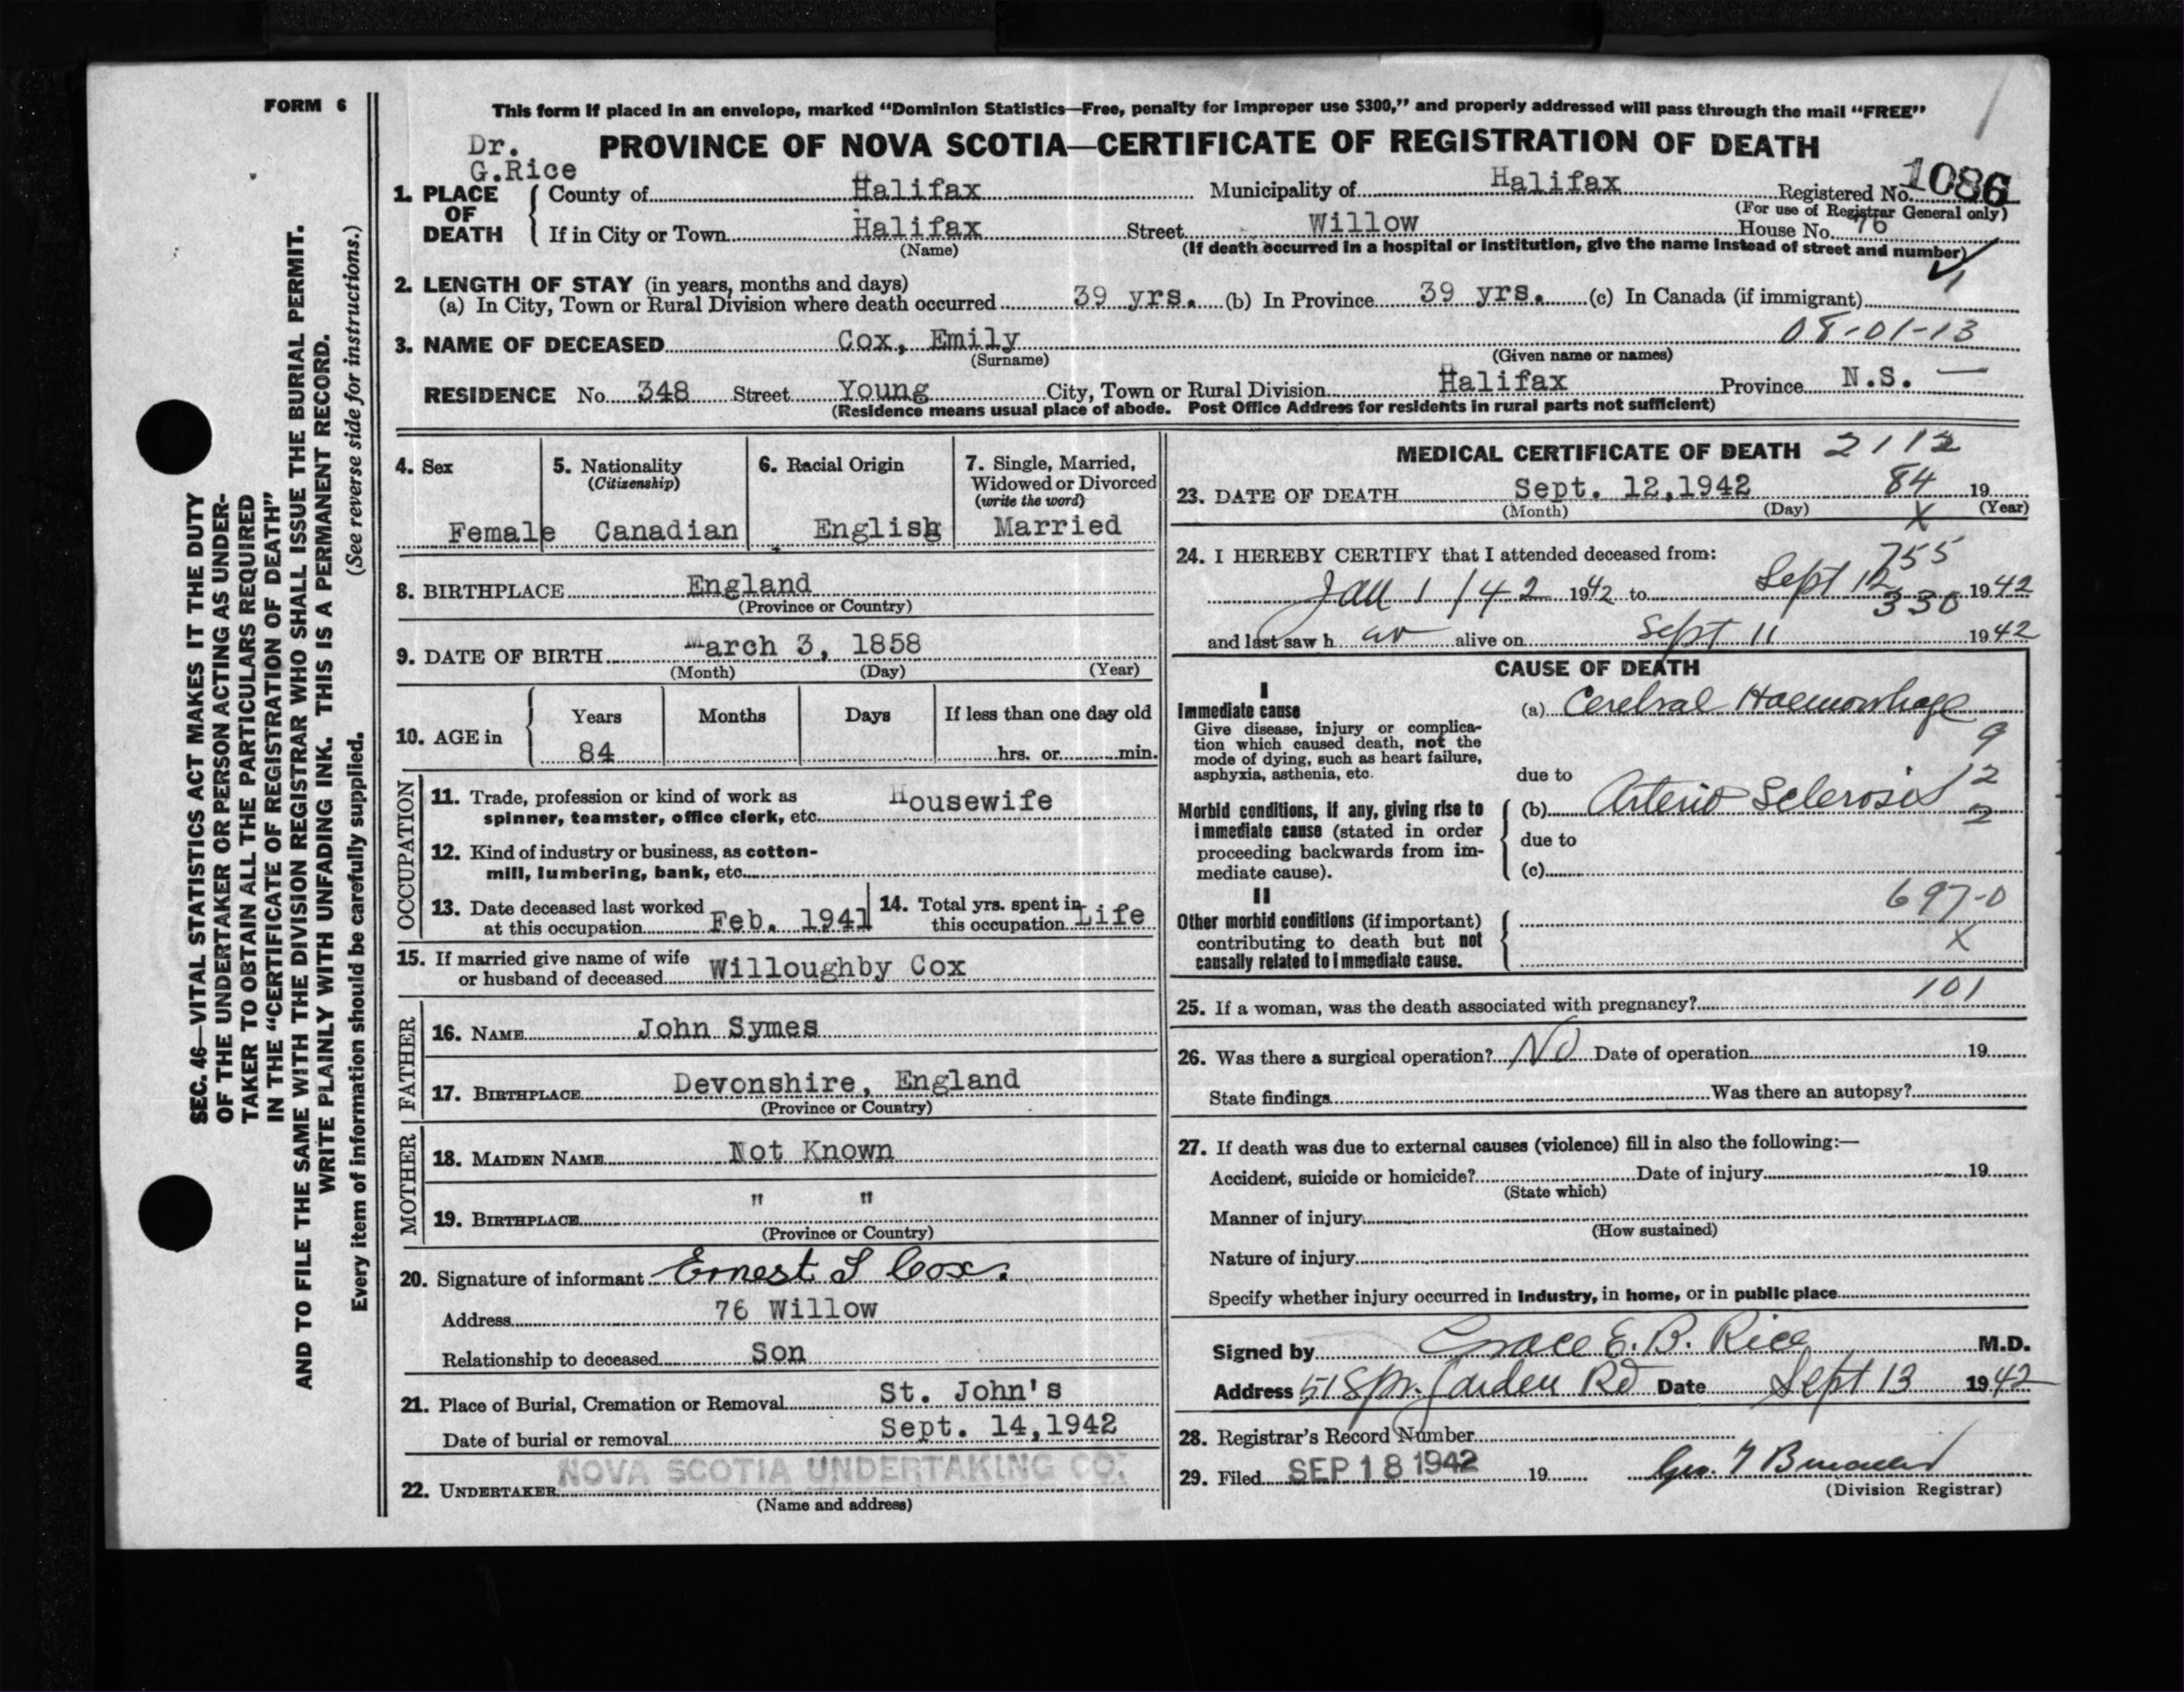 FORM 6
This form if placed in an envelope, marked “Dominion Statistics—Free, penalty for improper use $300,” and properly addressed will pass through the mail “FREE”
Dr.
G.Rice
PROVINCE OF NOVA SCOTIA—CERTIFICATE OF REGISTRATION OF DEATH
1. PLACE OF DEATH
County of Halifax Municipality of Halifax Registered No. 1086
(For use of Registrar General only)
If in City or Town Halifax Street Willow House No. 76
(Name) (If death occurred in a hospital or institution, give the name instead of street and number)
2. LENGTH OF STAY (in years, months and days)
(a) In City, Town or Rural Division where death occurred 39 yrs. (b) In Province 39 yrs. (c) In Canada (if immigrant)
08-01-13
3. NAME OF DECEASED Cox, Emily
(Surname) (Given name or names)
RESIDENCE No. 348 Street Young City, Town or Rural Division Halifax Province N.S. —
(Residence means usual place of abode. Post Office Address for residents in rural parts not sufficient)
4. Sex
Female
5. Nationality
(Citizenship)
Canadian
6. Racial Origin
English
7. Single, Married,
Widowed or Divorced
(write the word)
Married
8. BIRTHPLACE England
(Province or Country)
9. DATE OF BIRTH March 3, 1858
(Month) (Day) (Year)
10. AGE in
Years Months Days If less than one day old
84 hrs. or min.
OCCUPATION
11. Trade, profession or kind of work as
spinner, teamster, office clerk, etc. Housewife
12. Kind of industry or business, as cotton-
mill, lumbering, bank, etc.
13. Date deceased last worked
at this occupation Feb. 1941
14. Total yrs. spent in
this occupation Life
15. If married give name of wife
or husband of deceased Willoughby Cox
FATHER
16. NAME John Symes
17. BIRTHPLACE Devonshire, England
(Province or Country)
MOTHER
18. MAIDEN NAME Not Known
19. BIRTHPLACE " "
(Province or Country)
20. Signature of informant Ernest S Cox.
Address 76 Willow
Relationship to deceased Son
21. Place of Burial, Cremation or Removal St. John's
Date of burial or removal Sept. 14,1942
22. UNDERTAKER NOVA SCOTIA UNDERTAKING CO.
(Name and address)
MEDICAL CERTIFICATE OF DEATH 2112
23. DATE OF DEATH Sept. 12,1942 84 19
(Month) (Day) X (Year)
24. I HEREBY CERTIFY that I attended deceased from:
755
Jan 1/42 1942 to Sept 12 1942
330
and last saw her alive on Sept 11 1942
CAUSE OF DEATH
I
Immediate cause (a) Cerebral Haemorrhage
Give disease, injury or complica-
tion which caused death, not the
mode of dying, such as heart failure,
asphyxia, asthenia, etc.
9
due to
2
Morbid conditions, if any, giving rise to
immediate cause (stated in order
proceeding backwards from im-
mediate cause).
(b) Arterio Sclerosis
2
due to
(c)
II
697-0
Other morbid conditions (if important)
contributing to death but not
causally related to immediate cause.
X
25. If a woman, was the death associated with pregnancy? 101
26. Was there a surgical operation? No Date of operation 19
State findings Was there an autopsy?
27. If death was due to external causes (violence) fill in also the following:—
Accident, suicide or homicide? Date of injury 19
(State which)
Manner of injury
(How sustained)
Nature of injury
Specify whether injury occurred in industry, in home, or in public place
Signed by Grace E. B. Rice M.D.
Address 51 Spr. Garden Rd Date Sept 13 1942
28. Registrar's Record Number
29. Filed SEP 18 1942 19 Geo.
(Division Registrar)
SEC. 46—VITAL STATISTICS ACT MAKES IT THE DUTY
OF THE UNDERTAKER OR PERSON ACTING AS UNDER-
TAKER TO OBTAIN ALL THE PARTICULARS REQUIRED
IN THE “CERTIFICATE OF REGISTRATION OF DEATH”
AND TO FILE THE SAME WITH THE DIVISION REGISTRAR WHO SHALL ISSUE THE BURIAL PERMIT.
WRITE PLAINLY WITH UNFADING INK. THIS IS A PERMANENT RECORD.
Every item of information should be carefully supplied. (See reverse side for instructions.)